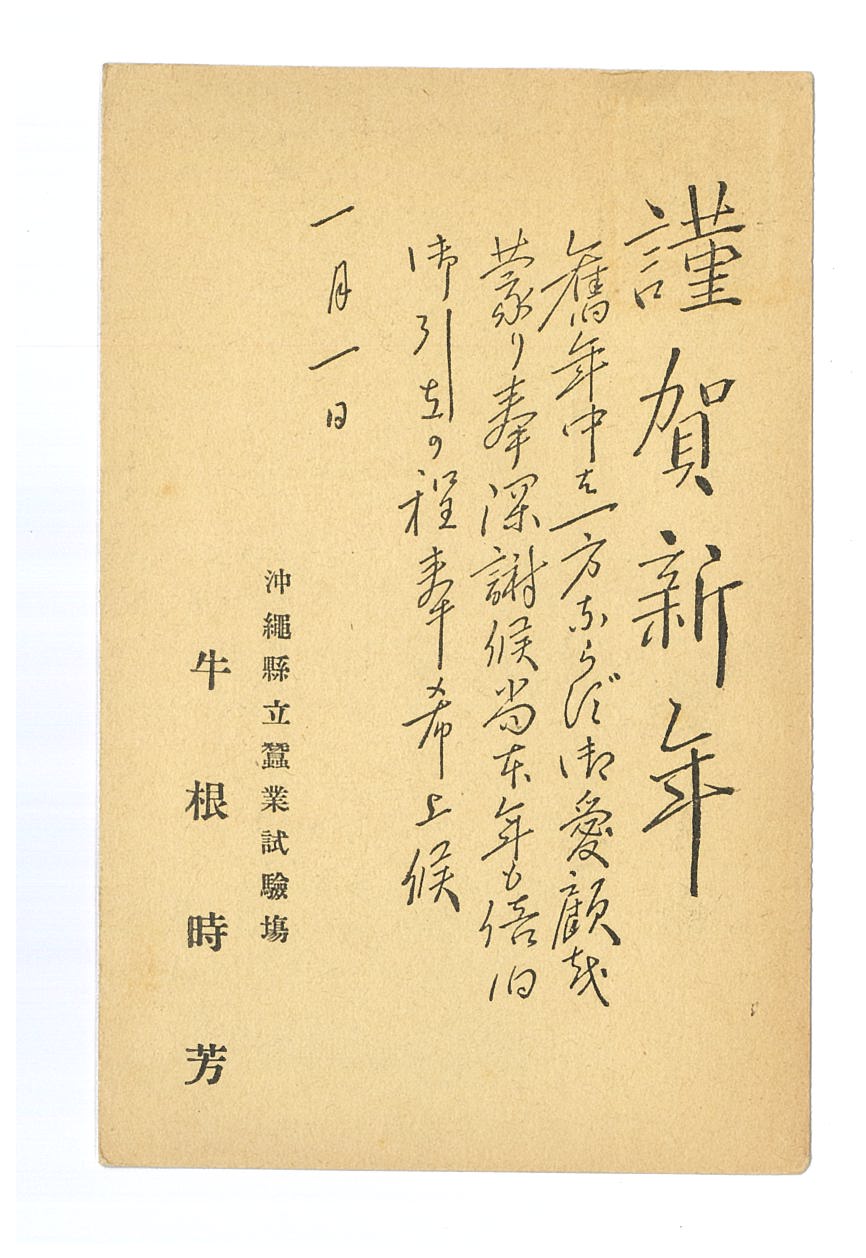 謹賀新年
舊年中は一方ならず御愛顧を
蒙り奉深謝候尚本年も倍旧
御引立の程奉希上候
一月一日
沖繩縣立蠶業試驗塲
牛根時芳